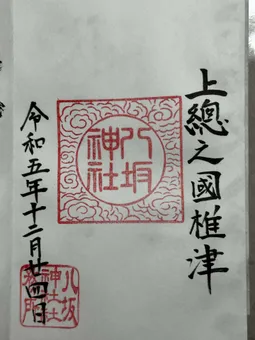 上總之國椎津
八坂
神社
令和五年十二月廿四日
八坂
神社